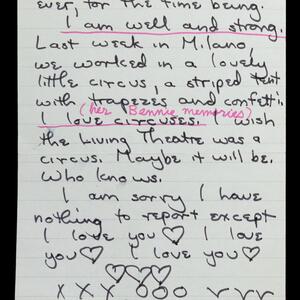 ever, for the time being.
I am well and strong.
Last week in Milano,
we worked in a lovely
little circus, a striped tent
with trapezes and confetti.
(her Bennie memories)
I love circuses. I wish
the Living Theatre was a
circus. Maybe it will be.
Who knows.
I am sorry I have
nothing to report except
I love you♡ I love
you♡ I love you♡
♡♡♡
X X X O O O